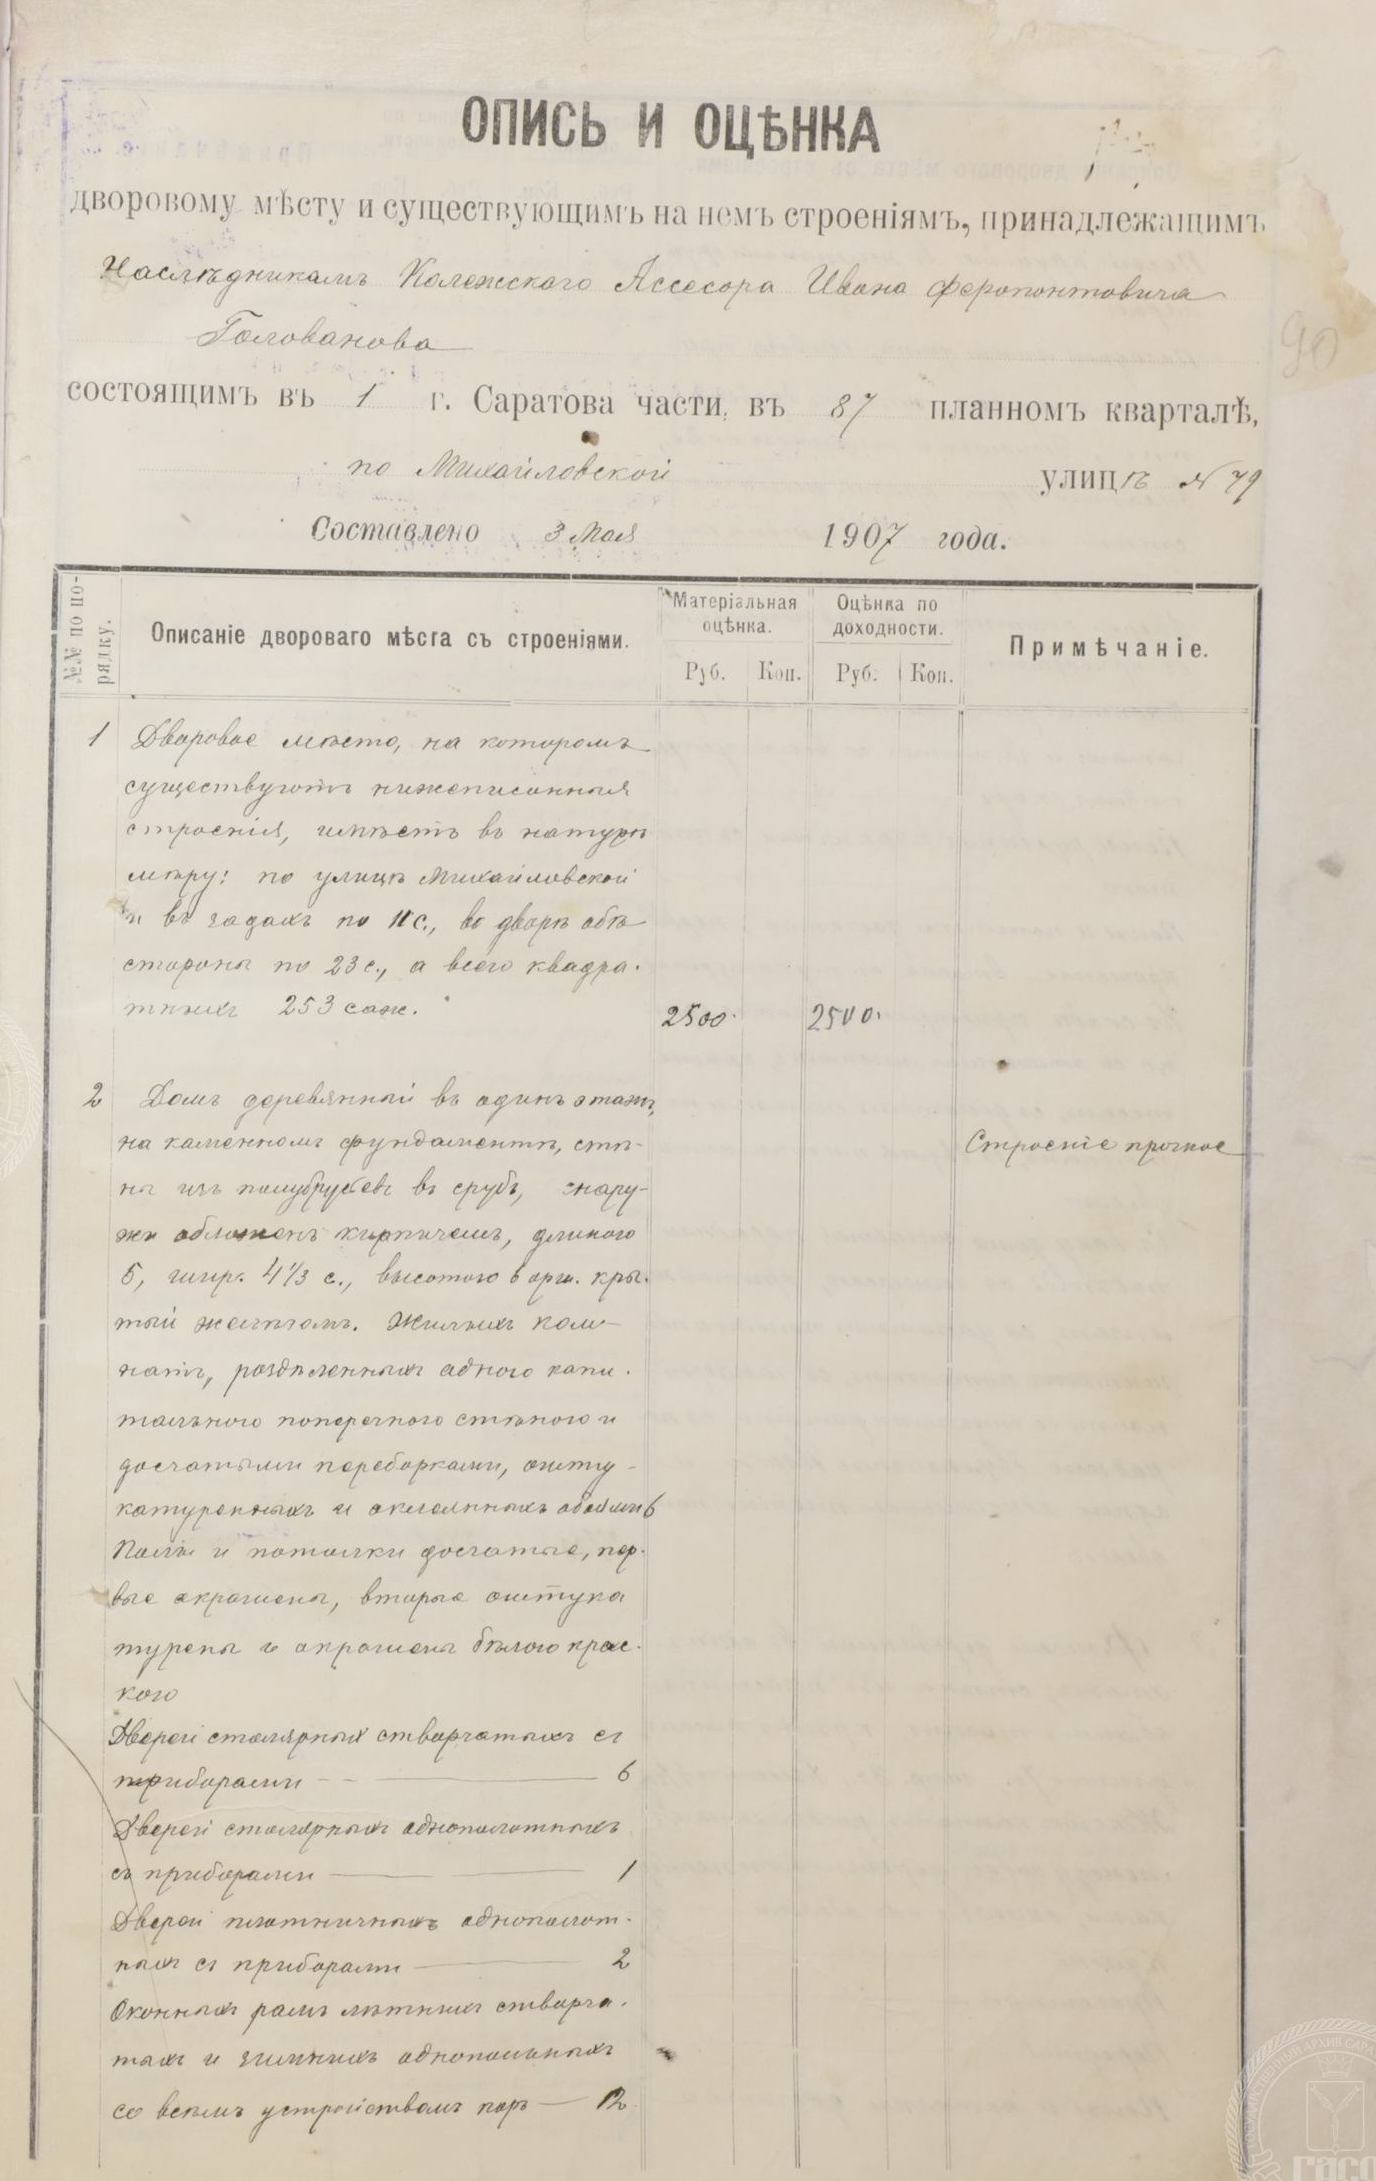 ОПИСЬ И ОЦѢНКА
дворовому мѣсту и существующимъ на немъ строеніямъ, принадлежащимъ
Наслѣдникамъ Колежскаго Ассесора Ивана Ферапонтовича
Голованова
состоящимъ въ 1 г. Саратова части, въ 87 планномъ кварталѣ,
по Михайловской улицѣ № 79
Составлено 3 Мая 1907 года.
№№ по по-
рядку.
Описаніе двороваго мѣста съ строеніями.
Матеріальная
оцѣнка.
Оцѣнка по
доходности.
Примѣчаніе.
Руб. Коп. Руб. Коп.
1 Дворовое мѣсто, на которомъ
существуютъ нижеписанныя
строенія, имѣетъ въ натурѣ
мѣру: по улицѣ Михайловской
и въ задахъ по 11 с., во дворѣ обѣ
стороны по 23 с., а всего квадра-
тныхъ 253 саж. 2500 2500
2 Домъ деревянный въ одинъ этажъ,
на каменномъ фундаментѣ, стѣ-
ны изъ полубрусьевъ въ срубѣ, снару-
жи обложенъ кирпичемъ, длиною
5, шир. 4 1/3 с., высотою 6 арш. кры-
тый желѣзомъ. Жилыхъ ком-
натъ, раздѣленныхъ одною капи-
тальною поперечною стѣною и
досчатыми переборками, ошту-
катуренныхъ и оклеенныхъ обоями 6
Полы и потолки досчатые, пер-
вые окрашены, вторые оштука
турены и окрашены бѣлою крас-
кою
Дверей столярныхъ створчатыхъ съ
приборами 6
Дверей столярныхъ однополотныхъ
съ приборами 1
Дверей плотничныхъ однополот-
ныхъ съ приборами 2
Оконныхъ рамъ лѣтнихъ створча-
тыхъ и зимнихъ однопольныхъ
со всѣмъ устройствомъ паръ 12
Строеніе прочное
90